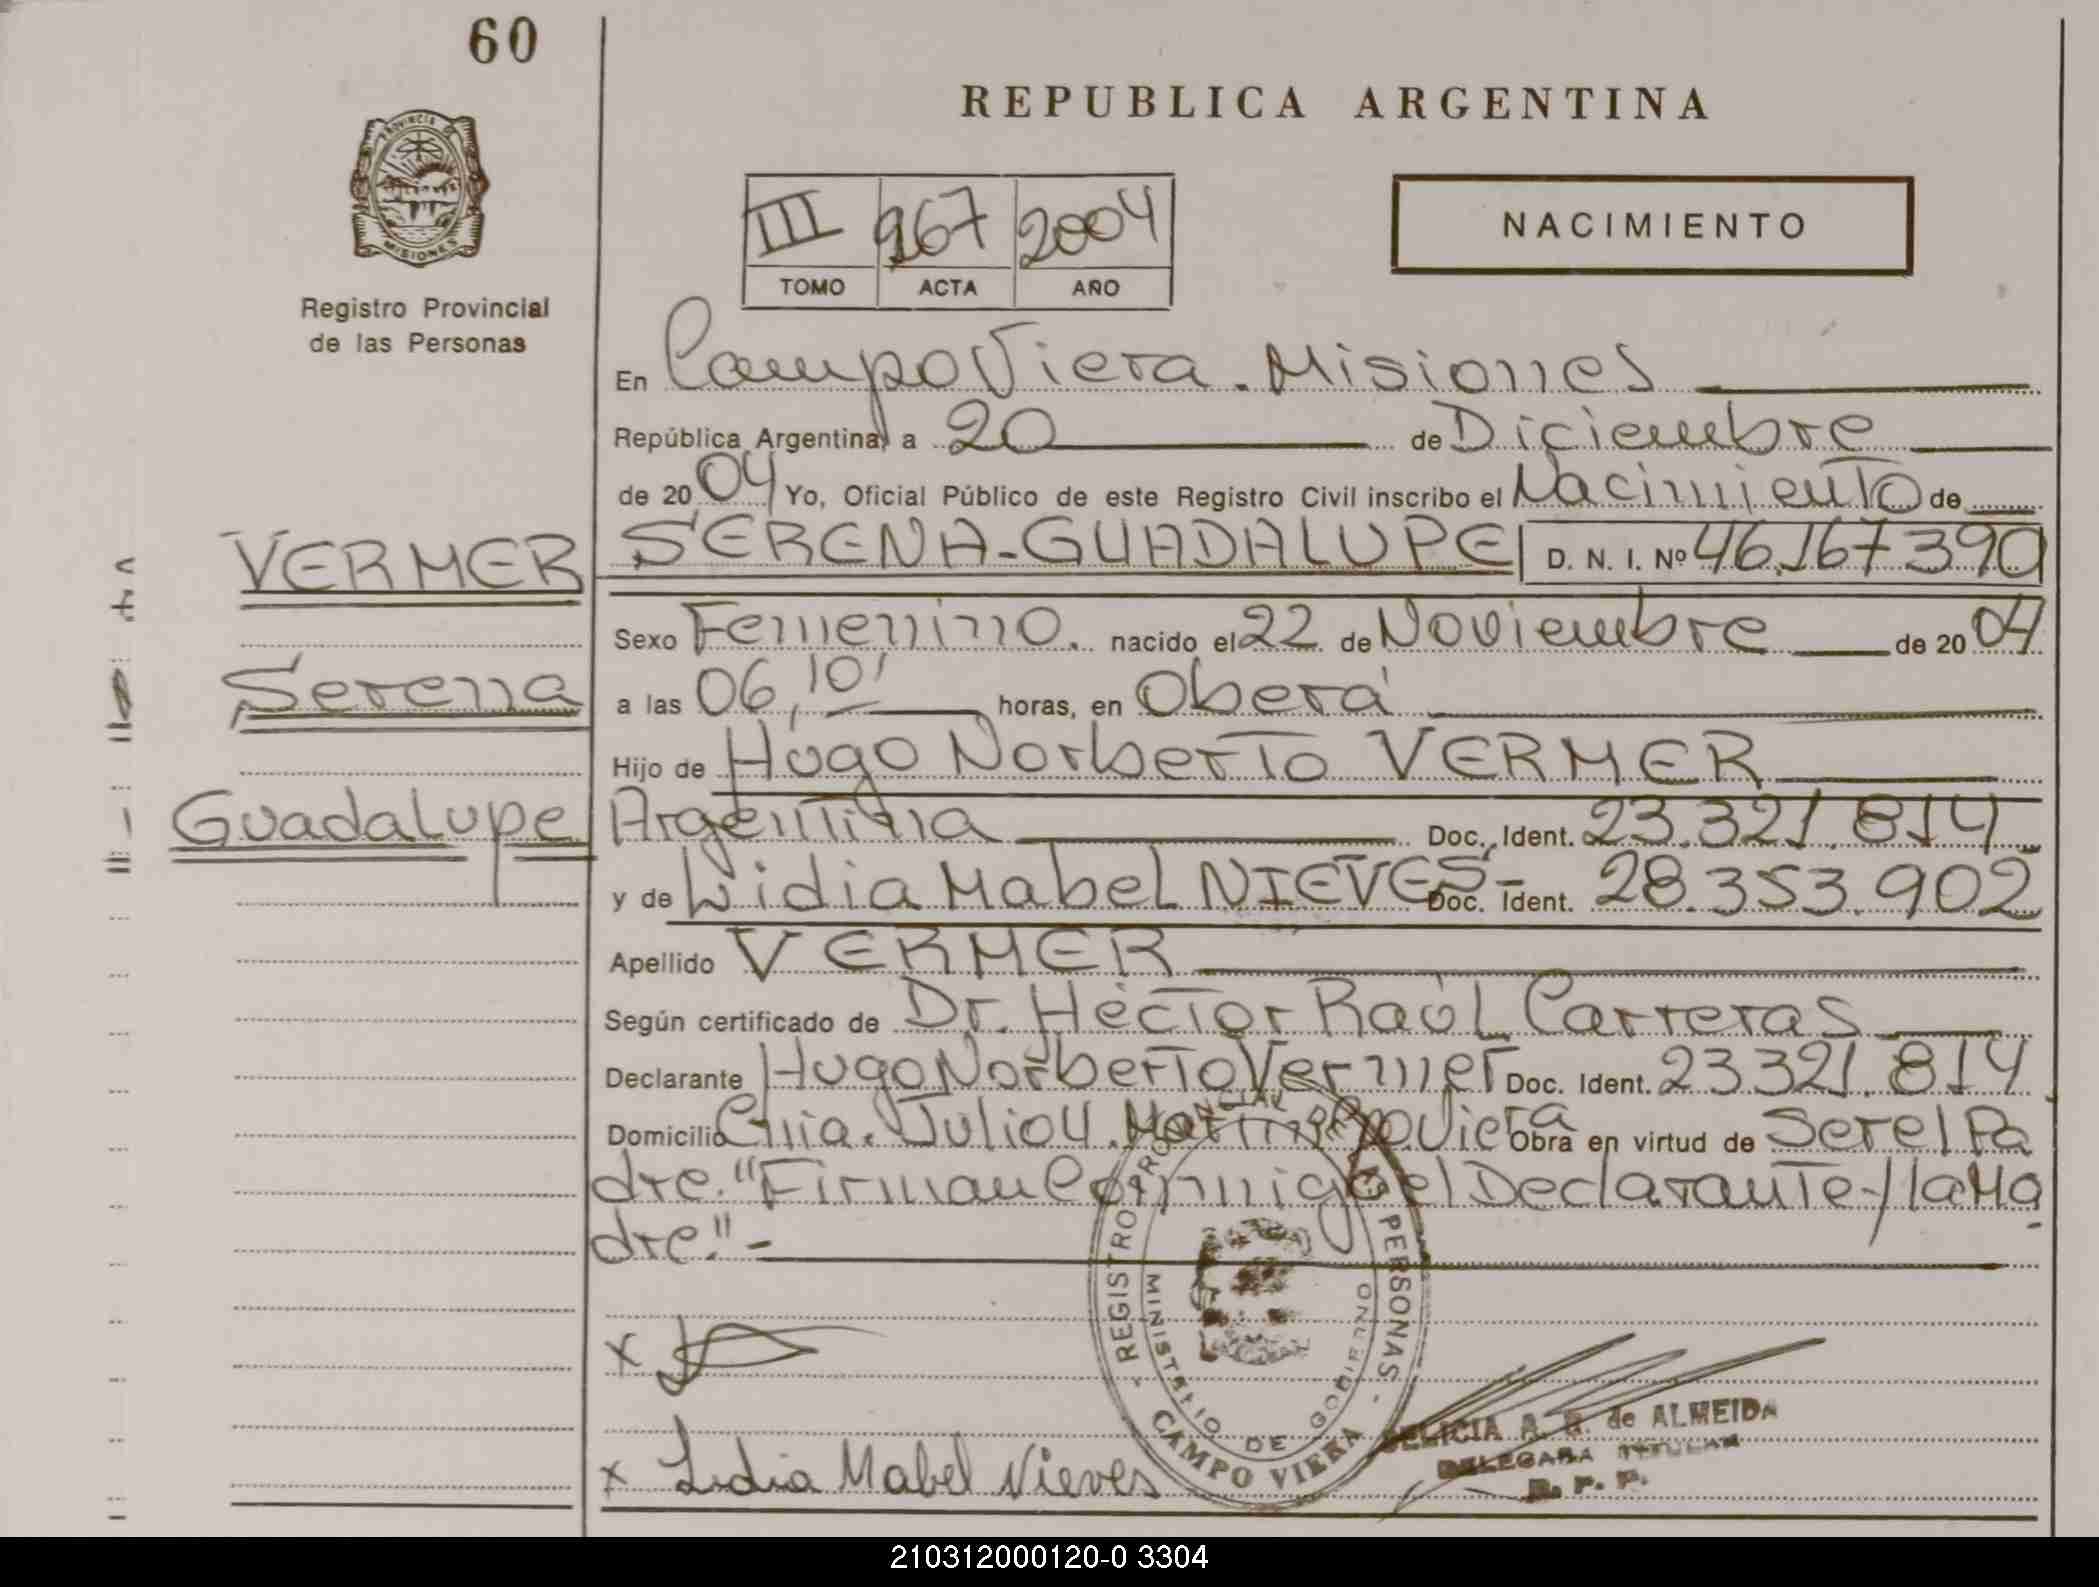 60
REPUBLICA ARGENTINA
PROVINCIA DE
MISIONES
III 967 2004
TOMO ACTA AÑO
NACIMIENTO
Registro Provincial
de las Personas
En Campo Viera. Misiones
República Argentina, a 20 de Diciembre
de 2004 Yo, Oficial Público de este Registro Civil inscribo el Nacimiento de
VERMER SERENA-GUADALUPE D. N. I. Nº 46.167390
Sexo Femenino. nacido el 22 de Noviembre de 2004
Serena a las 06,10' horas, en Oberá
Hijo de Hugo Norberto VERMER
Guadalupe Argentina Doc. Ident. 23.321.814
y de Lidia Mabel NIEVES- Doc. Ident. 28.353.902
Apellido VERMER
Según certificado de Dr. Héctor Raúl Carreras
Declarante Hugo Norberto Vermer Doc. Ident. 23321.814
Domicilio Julio U. Martin Viera Obra en virtud de Ser el Pa
dre. "Firman Conmigo el Declarante y la Ma
dre." -
x
x Lidia Mabel Nieves
REGISTRO PROVINCIAL DE LAS PERSONAS - CAMPO VIERA -
MINISTERIO DE GOBIERNO
FELICIA A. G. de ALMEIDA
DELEGADA TITULAR
R. P. P.
210312000120-0 3304